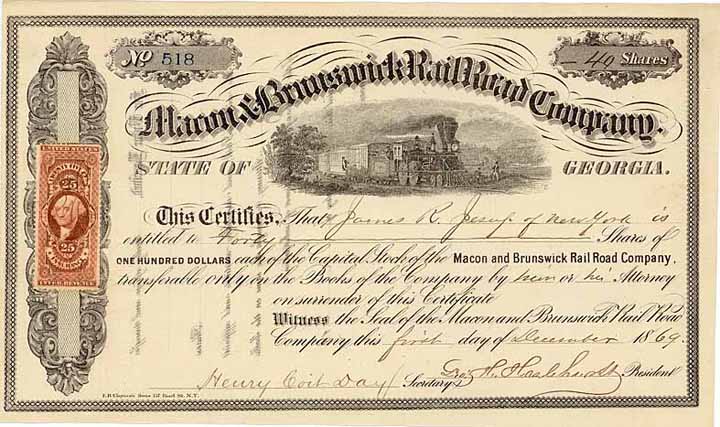 No 518
40 Shares
Macon & Brunswick Rail Road Company.
STATE OF GEORGIA.
This Certifies, That James R. Jesup of New York is
entitled to Forty Shares of
ONE HUNDRED DOLLARS each of the Capital Stock of the Macon and Brunswick Rail Road Company,
transferable only on the Books of the Company by him or his Attorney
on surrender of this Certificate
Witness the Seal of the Macon and Brunswick Rail Road
Company this first day of December 1869.
Henry Coit Day Secretary Geo. H. Hazlehurst President
UNITED STATES
25
25
INTER. REVENUE